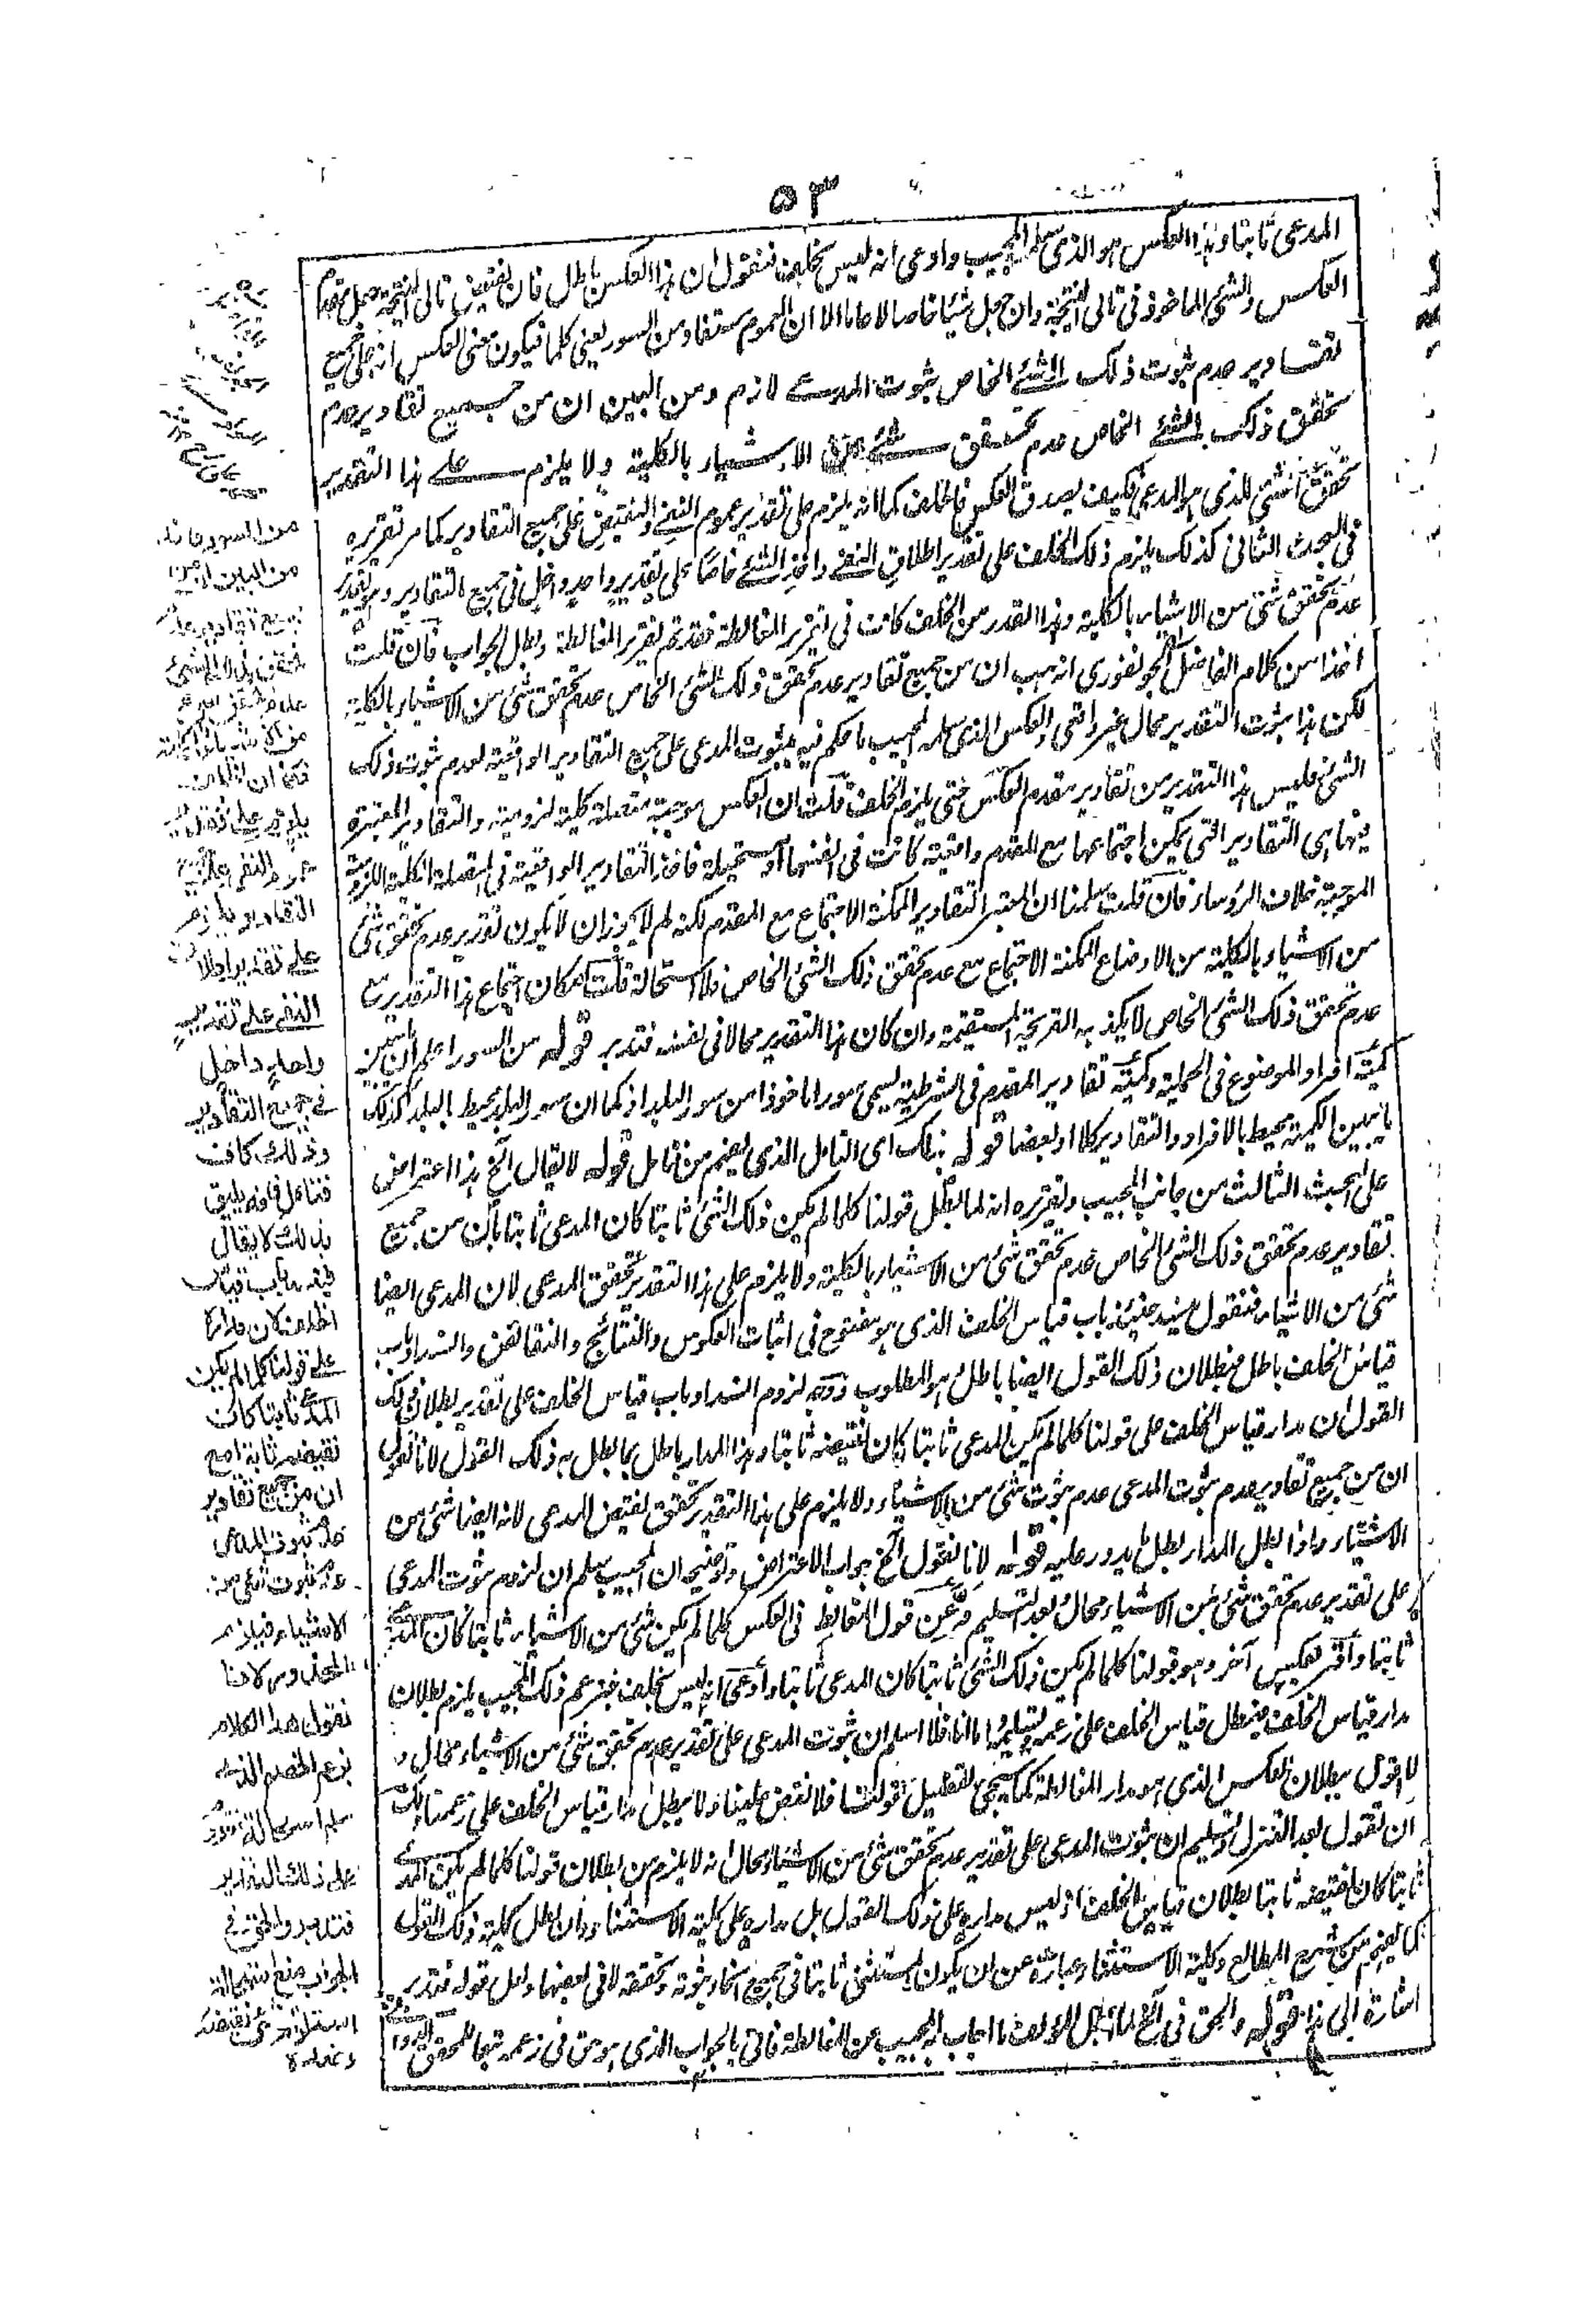 ٥٣
المدعى ثابتا وهذا العكس هو الذى سلمه المجيب وادعى انه ليس بخلف فنقول ان هذا العكس باطل فان نقيض تالى النتيجة جعل مقدم
العكس والشئ الماخوذ فى تالى النتيجة وان جعل شيئا خاصا لا عاما الا ان العموم مستفاد من السور يعنى كلما فيكون معنى العكس انه على جميع
تقادير عدم ثبوت ذلك الشئ الخاص ثبوت المدعى لازم ومن البين ان من جميع تقادير عدم
تحقق ذلك الشئ الخاص عدم تحقق شئ من الاشياء بالكلية ولا يلزم على هذا التقدير
تحقق الشئ الذى هو المدعى فكيف يصدق العكس فالخلف كما انه يلزم على تقدير عموم النفى والنقيض على جميع التقادير كما مر تقريره
فى البحث الثانى كذلك يلزم ذلك الخلف على تقدير اطلاق النفى واخذ الشئ خاصا على تقدير واحد داخل فى جميع التقادير وهو تقدير
عدم تحقق شئ من الاشياء بالكلية وهذا القدر من الخلف كانت فى تقرير المغالطة فقد تم تقرير المغالطة وبطل الجواب فان قلت
اخذا من كلام الفاضل الجونفورى انه هب ان من جميع تقادير عدم تحقق ذلك الشئ الخاص عدم تحقق شئ من الاشياء بالكلية
لكن هذا ثبوت التقدير محال غير واقعى والعكس الذى سلمه المجيب ما حكم فيه بثبوت المدعى على جميع التقادير الواقعية لعدم ثبوت ذلك
الشئ فليس هذا التقدير من تقادير مقدم العكس حتى يلزم الخلف قلت ان العكس موجبة متصلة كلية لزومية والتقادير المعتبرة
فيها هى التقادير التى يمكن اجتماعها مع المقدم واقعية كانت فى انفسها او مستحيلة فاخذ التقادير الواقعية فى المتصلة الكلية اللزومية
الموجبة خلاف الرؤساء فان قلت سلمنا ان المعتبر التقادير الممكنة الاجتماع مع المقدم لكنه لم لا يجوز ان لا يكون تقدير عدم تحقق شئ
من الاشياء بالكلية من الاوضاع الممكنة الاجتماع مع عدم تحقق ذلك الشئ الخاص فلا استحالة قلت امكان اجتماع هذا التقدير مع
عدم تحقق ذلك الشئ الخاص لا يكذبه القريحة المستقيمة وان كان هذا التقدير محالا فى نفسه فتدبر قوله من السور اعلم ان ما يبين به
كمية افراد الموضوع فى الحملية وكمية تقادير المقدم فى الشرطية يسمى سورا ماخوذا من سور البلد اذ كما ان سور البلد يحيط البلد كذلك
ما يبين الكمية محيط بالافراد والتقادير كلا او بعضا قوله بذلك اى التامل الذى يفهم من تامل قوله لا يقال الخ هذا اعتراض
على البحث الثالث من جانب المجيب وتقريره انه لما بطل قولنا كلما لم يكن ذلك الشئ ثابتا كان المدعى ثابتا بان من جميع
تقادير عدم تحقق ذلك الشئ الخاص عدم تحقق شئ من الاشياء بالكلية ولا يلزم على هذا التقدير تحقق المدعى لان المدعى ايضا
شئ من الاشياء فنقول ينسد حينئذ باب قياس الخلف الذى هو مفتوح فى اثبات العكوس والنتائج والنقائض وانسداد باب
قياس الخلف باطل فبطلان ذلك القول ايضا باطل وهو المطلوب ووجه لزوم انسداد باب قياس الخلف على تقدير بطلان ذلك
القول ان مدار قياس الخلف على قولنا كلما لم يكن المدعى ثابتا كان نقيضه ثابتا وهذا المدار باطل بما بطل به ذلك القول لانا نقول
ان من جميع تقادير عدم ثبوت المدعى عدم ثبوت شئ من الاشياء ولا يلزم على هذا التقدير تحقق نقيض المدعى لانه ايضا شئ من
الاشياء واذا بطل المدار بطل ما يدور عليه قوله لانا نقول الخ جواب الاعتراض وتوضيحه ان المجيب سلم ان لزوم ثبوت المدعى
على تقدير عدم تحقق شئ من الاشياء محال وبعد التسليم منع قول المغالط فى العكس كلما لم يكن شئ من الاشياء ثابتا كان المدعى
ثابتا واقر بعكس آخر وهو قولنا كلما لم يكن ذلك الشئ ثابتا كان المدعى ثابتا وادعى انه ليس بخلف فبزعم ذلك المجيب يلزم بطلان
مدار قياس الخلف فيبطل قياس الخلف على زعمه وتسليمه اما انا فلا اسلم ان ثبوت المدعى على تقدير عدم تحقق شئ من الاشياء محال و
لا اقول ببطلان العكس الذى هو مدار المغالطة كما سيجئ تفصيل قولنا فلا نقض علينا ولا يبطل مدار قياس الخلف على زعمنا ولك
ان تقول بعد التنزل وتسليم ان ثبوت المدعى على تقدير عدم تحقق شئ من الاشياء محال انه لا يلزم من بطلان قولنا كلما لم يكن المدعى
ثابتا كان نقيضه ثابتا بطلان قياس الخلف اذ ليس مداره على ذلك القول بل مداره على كلية الاستثناء وان بطل كلية ذلك القول
كما يفهم من شرح المطالع وكلية الاستثناء عبارة عن ان يكون المستثنى ثابتا فى جميع انحاء ثبوته وتحققه لا فى بعضها ولعل قوله فتدبر
اشارة الى هذا قوله والحق فى الخ لما ابطل المؤلف ما اجاب المجيب عن المغالطة فاتى بالجواب الذى هو حق فى زعمه تبعا للمحقق
من السور فانه
من البين ان من
جميع تقادير عدم
تحقق ذلك الشئ
عدم تحقق شئ
من الاشياء بالكلية
فكما ان الخلف
يلزم على تقدير
عموم النفى على جميع
التقادير يلزم
على تقدير اطلاق
النفى على تقدير
واحد داخل
فى جميع التقادير
وذلك كاف
فتامل فانه يليق
بذلك لا يقال
فينسد باب قياس
الخلف لان مداره
على قولنا كلما لم يكن
المدعى ثابتا كان
نقيضه ثابتا مع
ان من جميع تقادير
عدم ثبوت المدعى
عدم ثبوت شئ من
الاشياء فيلزم
المحذور لانا
نقول هذا الكلام
بزعم الخصم الذى
سلم استحالة ثبوت
على ذلك التقدير
فتدبر والحق فى
الجواب منع استحالة
استلزام شئ نقيضه